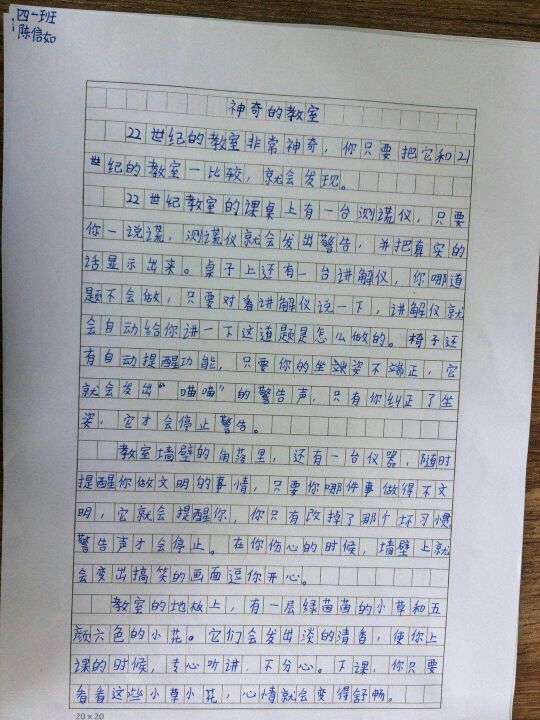 四一班
陈信如
神奇的教室
22世纪的教室非常神奇，你只要把它和21
世纪的教室一比较，就会发现。
22世纪教室的课桌上有一台测谎仪，只要
你一说谎，测谎仪就会发出警告，并把真实的
话显示出来。桌子上还有一台讲解仪，你哪道
题不会做，只要对着讲解仪说一下，讲解仪就
会自动给你讲一下这道题是怎么做的。椅子还
有自动提醒功能，只要你的坐姿不端正，它
就会发出“喵喵”的警告声，只有你纠正了坐
姿，它才会停止警告。
教室墙壁的角落里，还有一台仪器，随时
提醒你做文明的事情，只要你哪件事做得不文
明，它就会提醒你，你只有改掉了那个坏习惯
警告声才会停止。在你伤心的时候，墙壁上就
会变出搞笑的画面逗你开心。
教室的地板上，有一层绿茵茵的小草和五
颜六色的小花。它们会发出淡的清香，使你上
课的时候，专心听讲，不分心。下课，你只要
看看这些小草小花，心情就会变得舒畅。
20×20